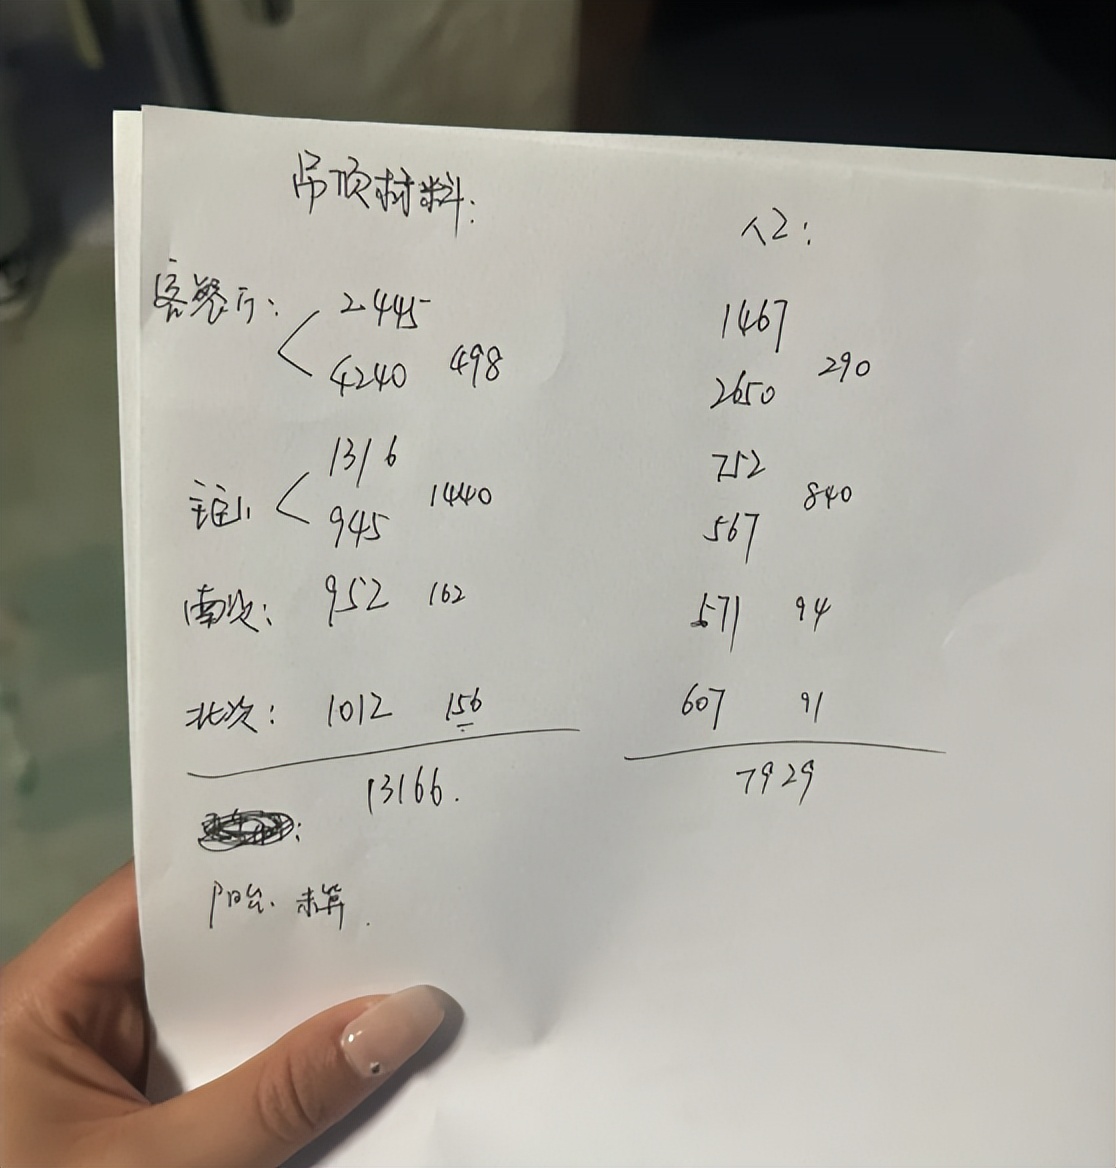 吊顶材料:
人工:
客餐厅: 2445 1467
4240 498 2650 290
1316 752
主卧 945 1440 567 840
南次: 952 162 571 94
北次: 1012 156 607 91
13166. 7929
阳台. 未算.